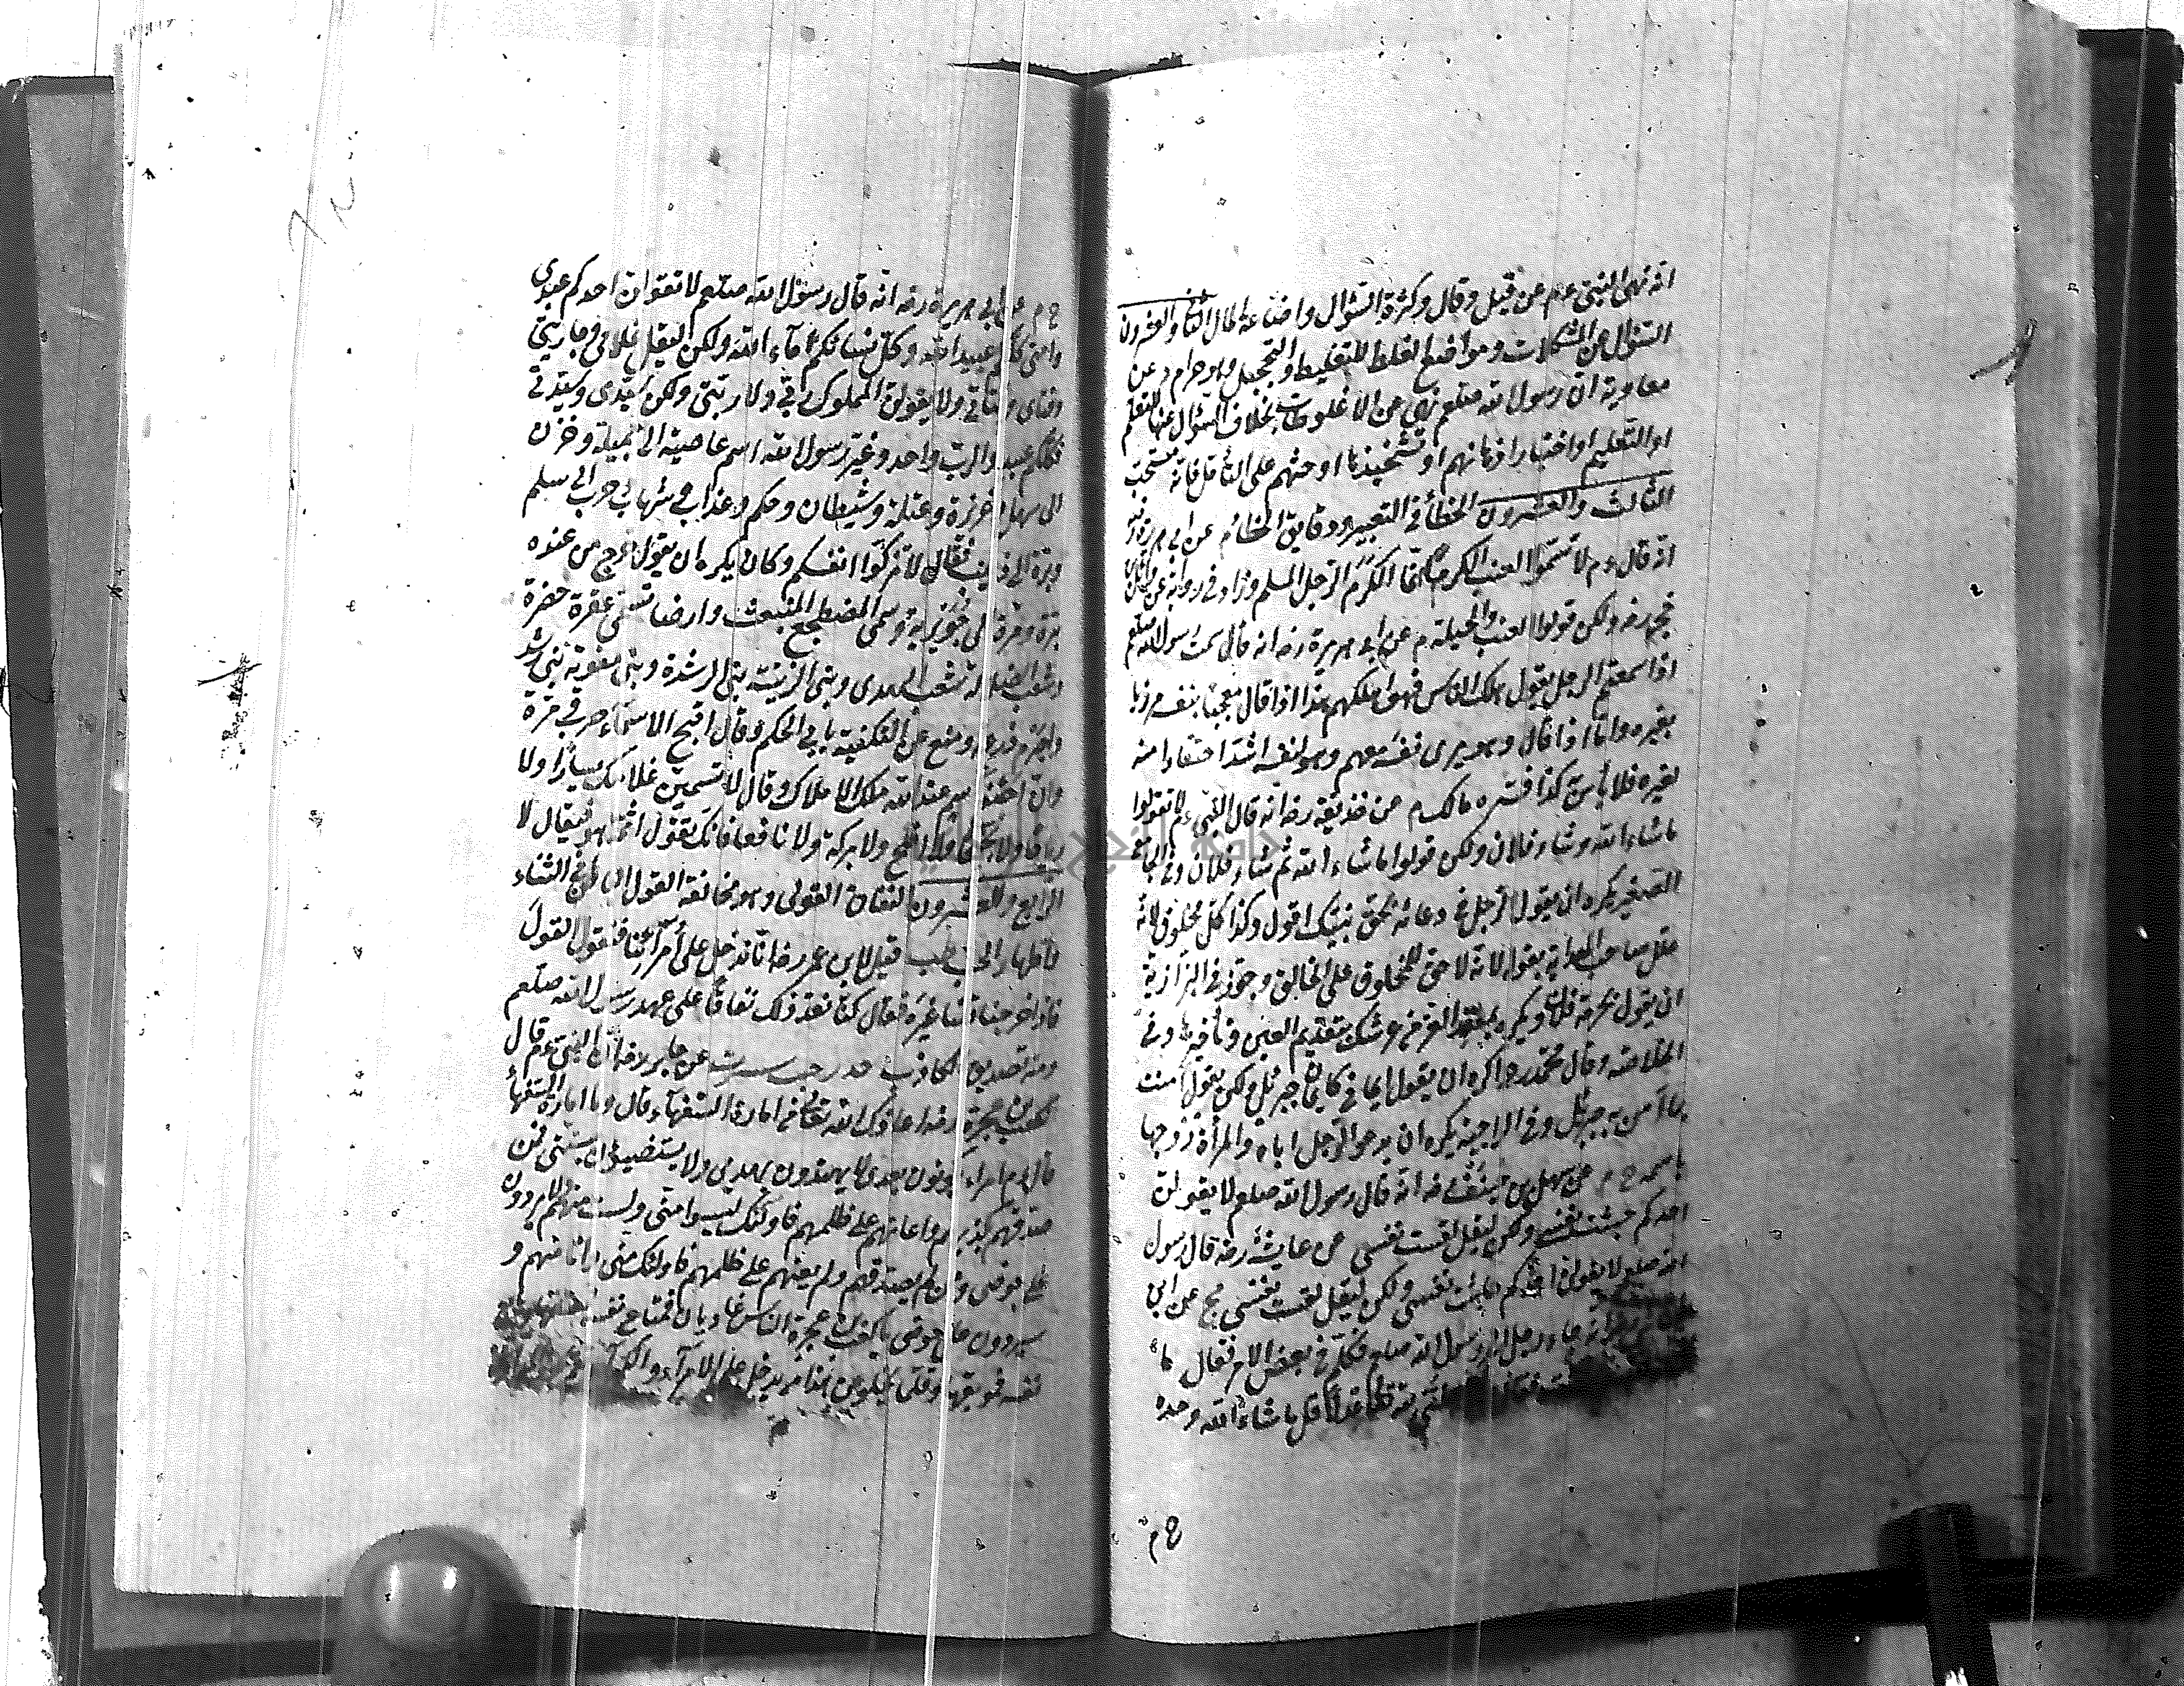 انه نهى النبى عم عن قيل وقال وكثرة السؤال واضاعة المال الثانى والعشرون
السؤال عن المشكلات ومواضع الغلط للتغليط والتخجيل وهو حرام د عن
معاوية ان رسول الله صلعم نهى عن الاغلوطات بخلاف السؤال عنها للتعلم
او التعليم او اختبار اذهانهم او تشحيذها او حثهم على التأمل فانه مستحب
الثالث والعشرون الخطأ فى التعبير ودقايق الخطاء م عن ابى هريرة
انه قال عم لا تسموا العنب الكرم انما الكرم الرجل المسلم وزاد فى رواية عن وائل بن
حجر رضه ولكن قولوا العنب والحبلة م عن ابى هريرة رضه انه قال سمعت رسول الله صلعم
اذا سمعتم الرجل يقول هلك الناس فهو اهلكهم هذا اذا قال معجبا بنفسه مزريا
بغيره واما اذا قال وهو يرى نفسه معهم وهو لنفسه اشد احتقارا منه
لغيره فلا بأس كذا فسره مالك د عن حذيفة رضه انه قال النبى عم لا تقولوا
ما شاء الله وشاء فلان ولكن قولوا ما شاء الله ثم شاء فلان وفى الجامع
الصغير يكره ان يقول الرجل فى دعائه بحق نبيك اقول وكذا كل مخلوق لانه
علل صاحب الهداية بقوله لانه لا حق للمخلوق على الخالق وجوز فى البزازية
ان يقول بحرمة فلان ويكره بمقعد العز من عرشك بتقديم العين وتأخيرها وفى
الخلاصة وقال محمد رح اكره ان يقول ايمانى كايمان جبرئل ولكن يقول آمنت
بما آمن به جبرئل وفى السراجية يكره ان يدعو الرجل اباه والمرأة زوجها
باسمه خ م عن سهل بن حنيف رضه انه قال رسول الله صلعم لا يقولن
احدكم خبثت نفسى ولكن ليقل لقست نفسى عن عايشة رضه قال رسول
الله صلعم لا يقولن احدكم جاشت نفسى ولكن ليقل لقست نفسى مج عن ابن
انه جاء رجل الى رسول الله صلعم فكلمه فى بعض الامر فقال ما
لله قل ما شاء الله وحده
خ م
خ م عن ابى هريرة رضه انه قال رسول الله صلعم لا يقولن احدكم عبدى
وامتى كلكم عبيد الله وكل نسائكم اماء الله ولكن ليقل غلامى وجاريتى
وفتاى وفتاتى ولا يقولن المملوك ربى ولا ربتى ولكن سيدى وسيدتى
فكلكم عبيد والرب واحد وغير رسول الله اسم عاصية الى جميلة وحزن
الى سهل وعزيزة وعتلة وشيطان وحكم وغراب وشهاب حرب الى سلم
وبرة الى زينب فقال لا تزكوا انفسكم وكان يكره ان يقول خرج من عند
برة ومرة الى جويرية وسمى المضطجع المنبعث وارضا تسمى عفرة خضرة
وشعب الضلالة شعب الهدى وبنى الزنية بنى الرشدة وبنى مغوية بنى رشد
واصرم زرعة ومنع عن التكنية بابى الحكم وقال اقبح الاسماء حرب ومرة
وان اخنع اسم عند الله ملك الاملاك وقال لا تسمين غلامك يسارا ولا
رباحا ولا نجيحا ولا افلح ولا بركة ولا نافعا فانك تقول اثم هو فيقال لا
الرابع والعشرون النفاق القولى وهو مخالفة القول الباطن فى الثناء
واظهار الحب طب قيل لابن عمر رضه انا ندخل على امرائنا فنقول القول
فاذا خرجنا قلنا غيره فقال كنا نعد ذلك نفاقا على عهد رسول الله صلعم
ومنه تصديق الكاذب حد عن جابر رضه ان النبى عم قال
لكعب بن عجرة رضه اعاذك الله تعالى من امارة السفهاء قال وما امارة السفهاء
قال عم امراء يكونون بعدى لا يهتدون بهديى ولا يستضيؤن بسنتى فمن
صدقهم بكذبهم واعانهم على ظلمهم فاولئك ليسوا منى ولست منهم ولا يردون
على حوضى ومن لم يصدقهم ولم يعنهم على ظلمهم فاولئك منى وانا منهم و
سيردون على حوضى يا كعب بن عجرة الناس غاديان فمبتاع نفسه
نفسه فموبقها وقلما يخلو عن هذا من يدخل على الامراء